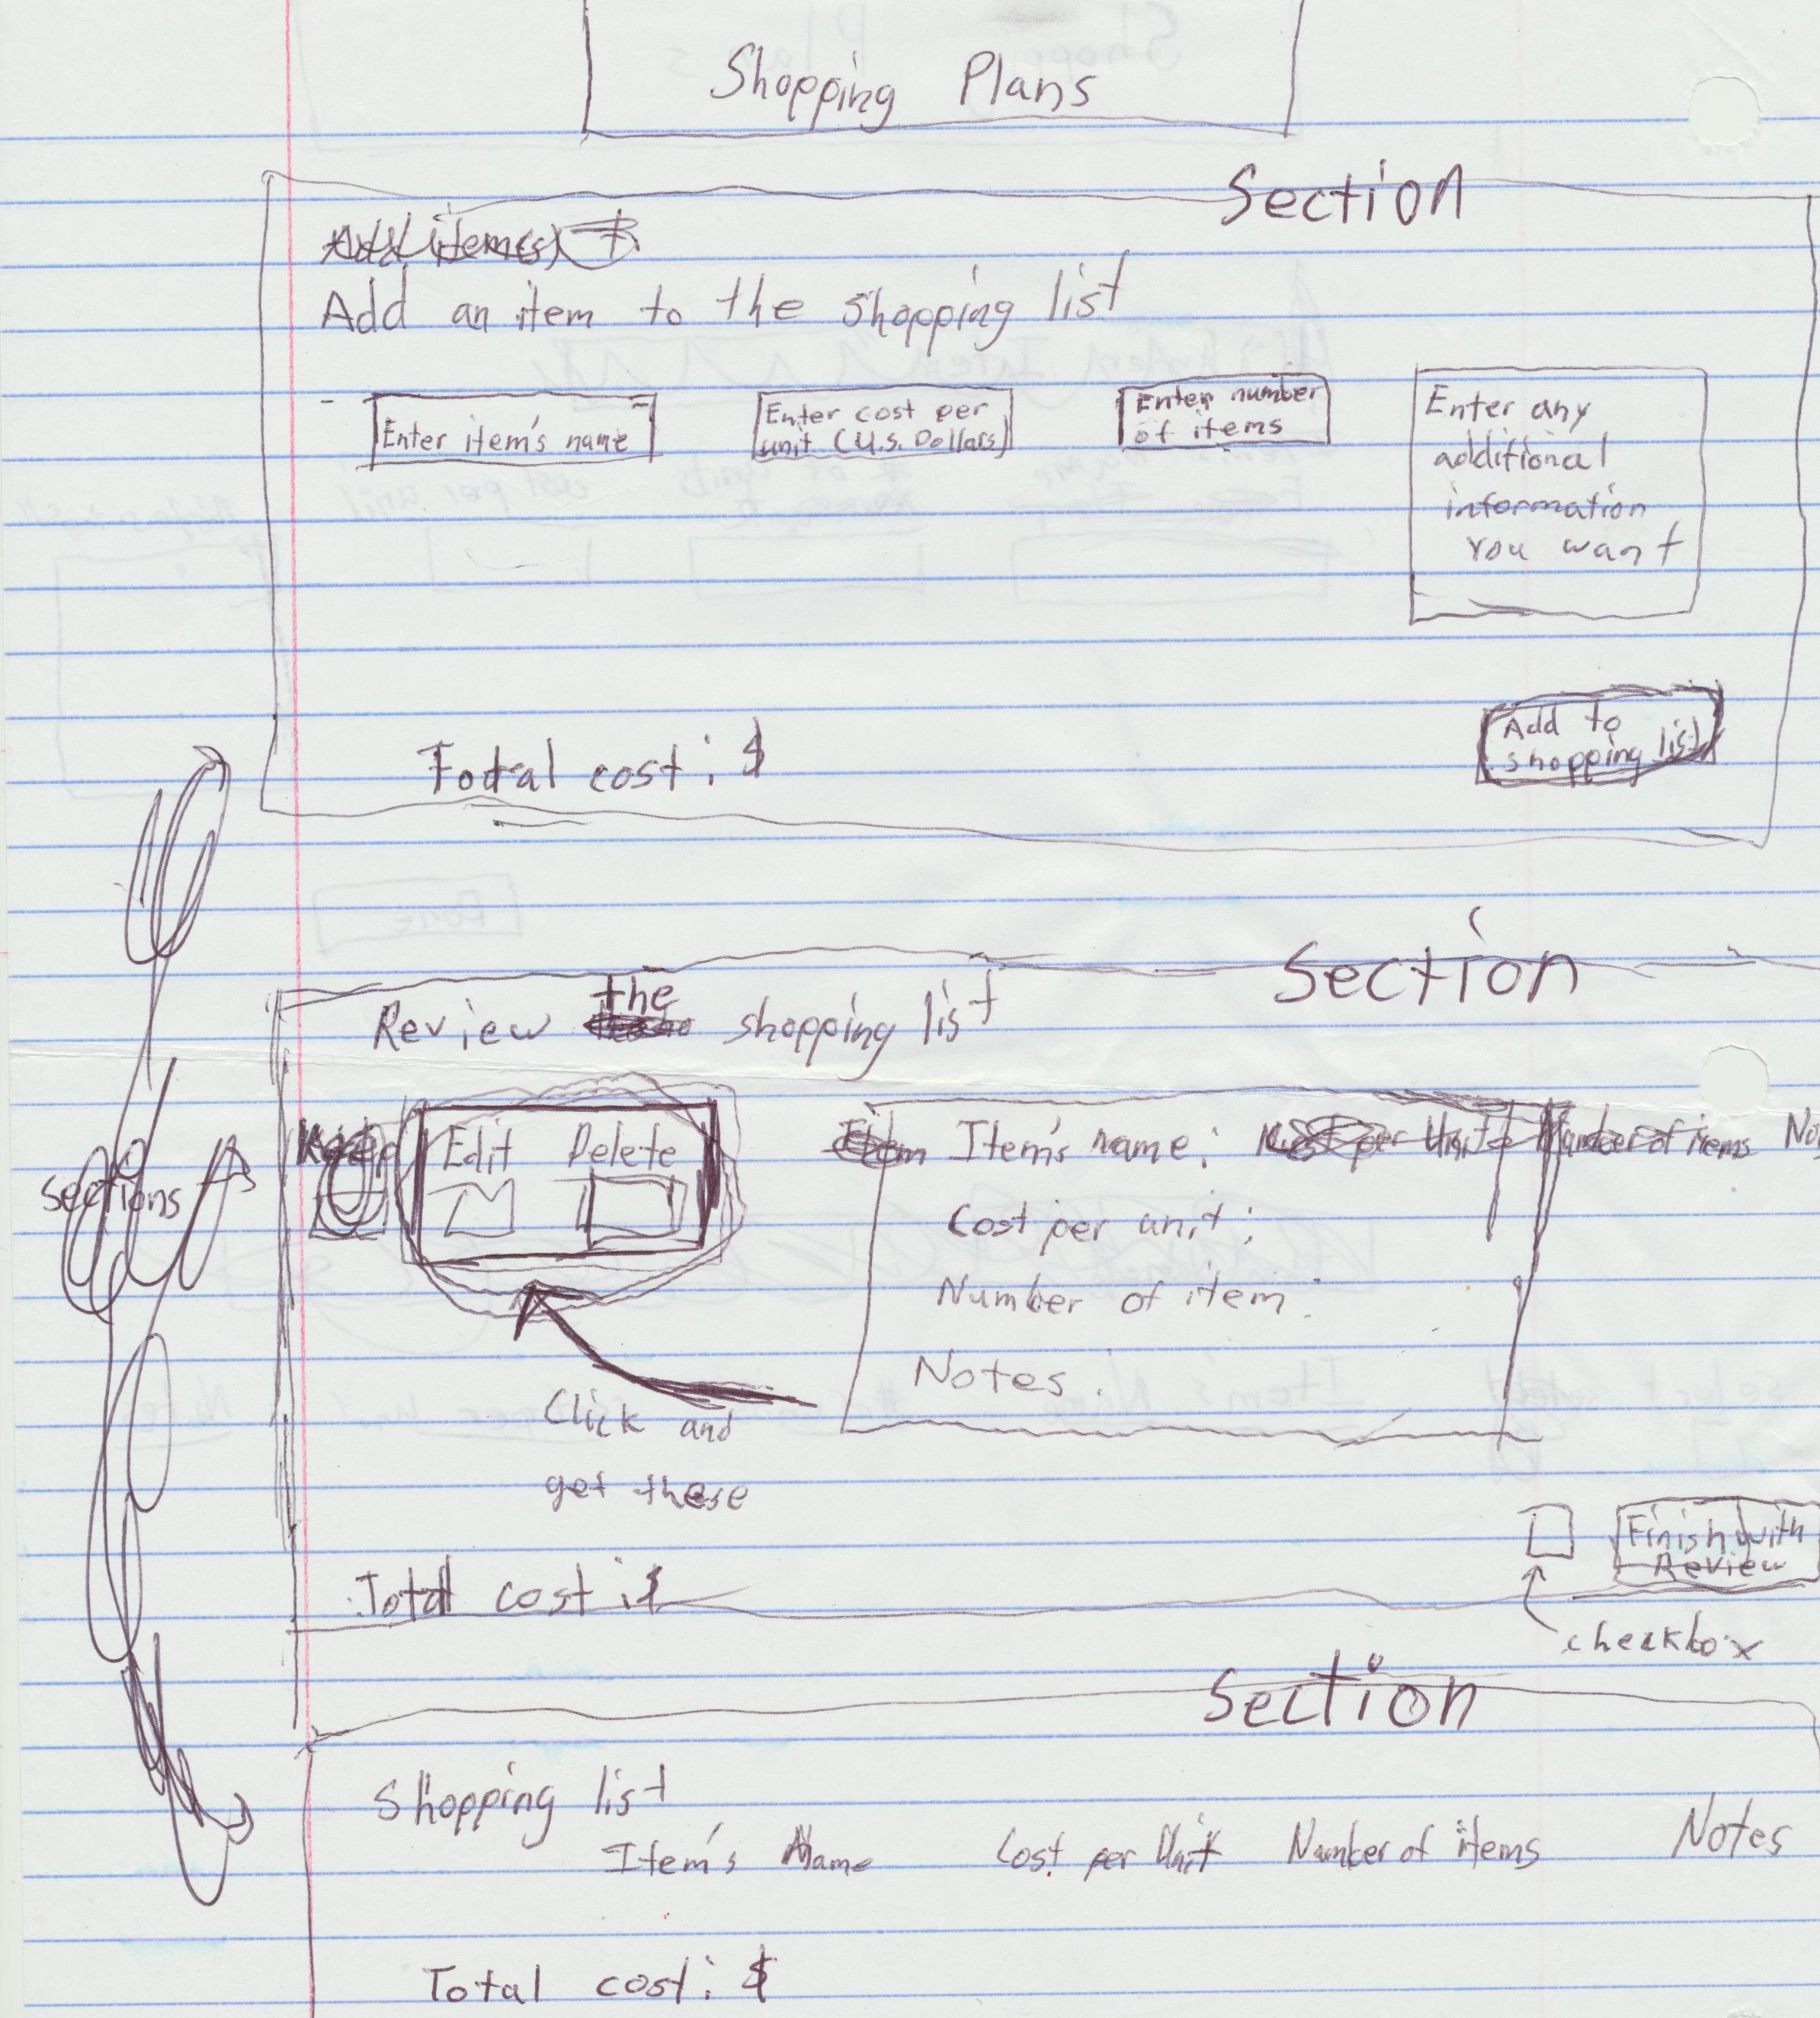 Shopping Plans
Section
Add item(s)
Add an item to the shopping list
Enter item's name
Enter cost per
unit (U.S. Dollars)
Enter number
of items
Enter any
additional
information
you want
Total cost: $
Add to
shopping list
Section
the
Review shopping list
sections
Edit Delete
Item Item's name: Cost per Unit Number of items No
Cost per unit:
Number of item:
Notes:
Click and
get these
Finish with
Review
checkbox
Total cost: $
Section
Shopping list
Item's Name Cost per Unit Number of items Notes
Total cost: $